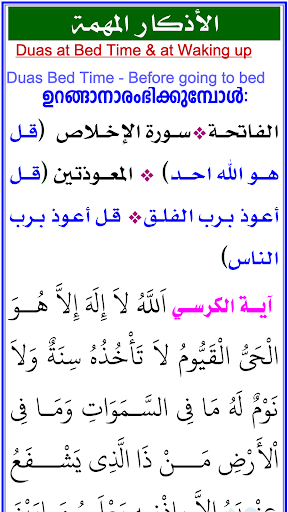 الأذكار المهمة
Duas at Bed Time & at Waking up
Duas Bed Time - Before going to bed
ഉറങ്ങാനാരംഭിക്കുമ്പോൾ:
الفاتحة❖سورة الإخلاص (قل
هو الله احد) ❖ المعوذتين (قل
أعوذ برب الفلق❖ قل أعوذ برب
الناس)
آية الكرسي اَللَّهُ لاَ إِلَهَ إِلاَّ هُوَ
الْحَيُّ الْقَيُّومُ لاَ تَأْخُذُهُ سِنَةٌ وَلاَ
نَوْمٌ لَهُ مَا فِى السَّمَوَاتِ وَمَا فِى
الْأَرْضِ مَنْ ذَا الَّذِى يَشْفَعُ